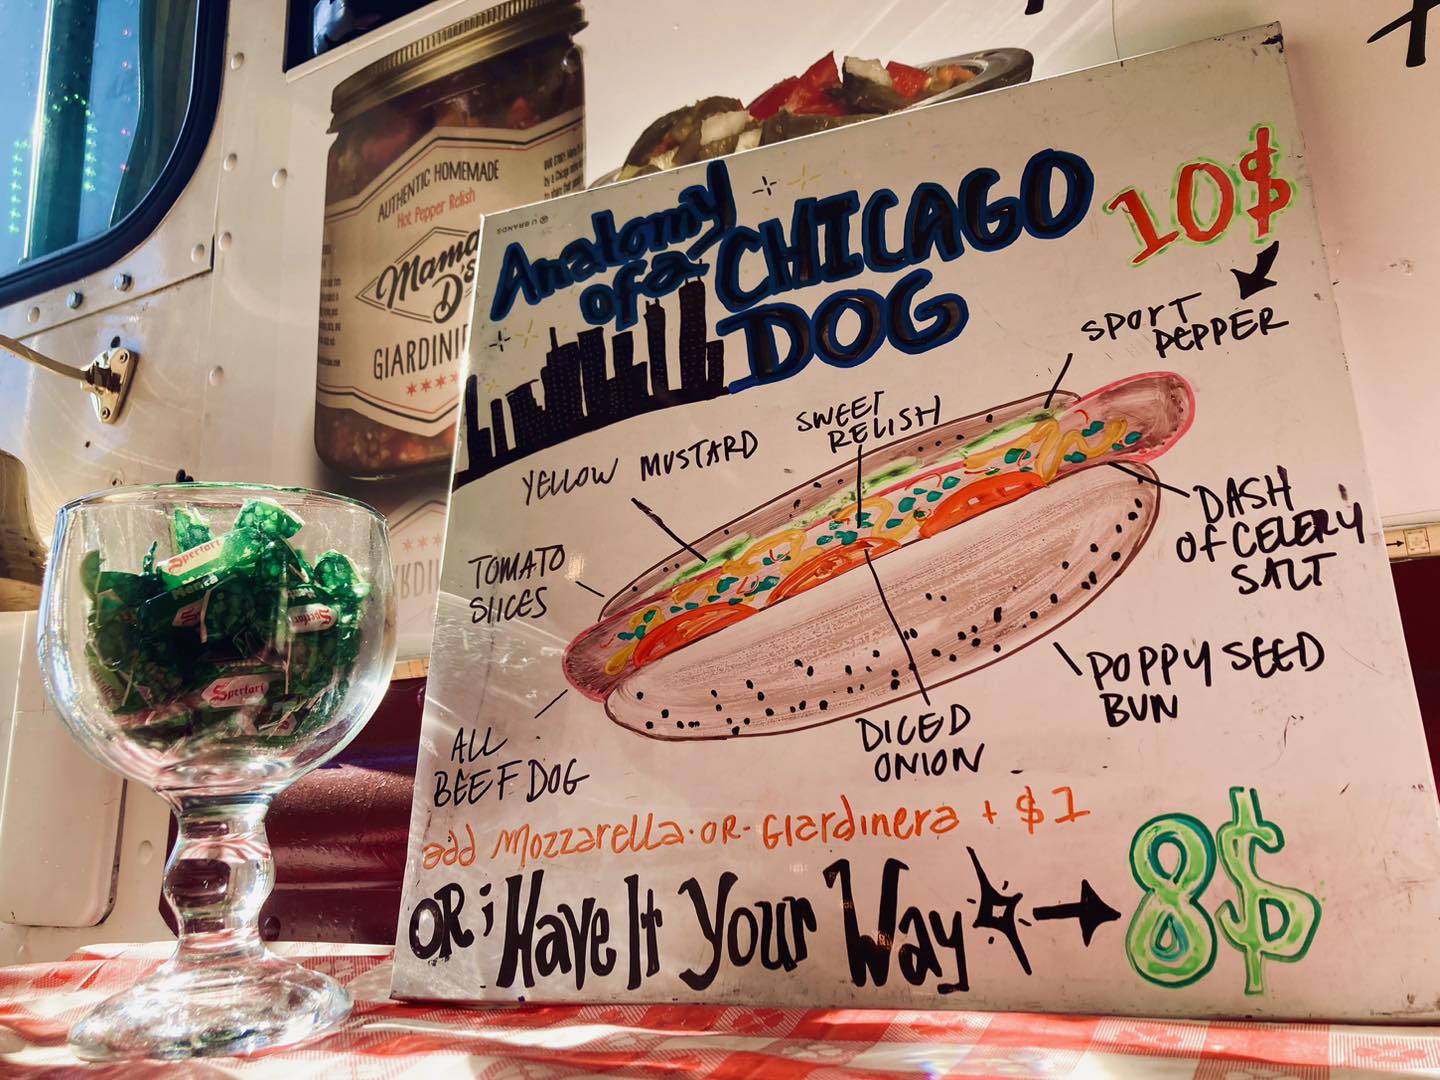 AUTHENTIC HOMEMADE
Hot Pepper Relish
Mama
D's
GIARDINI
U BRANDS
Anatomy
of a
CHICAGO
DOG
10$
SPORT
PEPPER
SWEET
RELISH
YELLOW MUSTARD
TOMATO
SlICES
DASH
Of CELERY
SALT
POPPY SEED
BUN
ALL
BEEF DOG
DICED
ONION
add Mozzarella·OR·Giardinera + $1
OR; Have It Your Way
8$
Sperlari
Sperlari
Sperlari